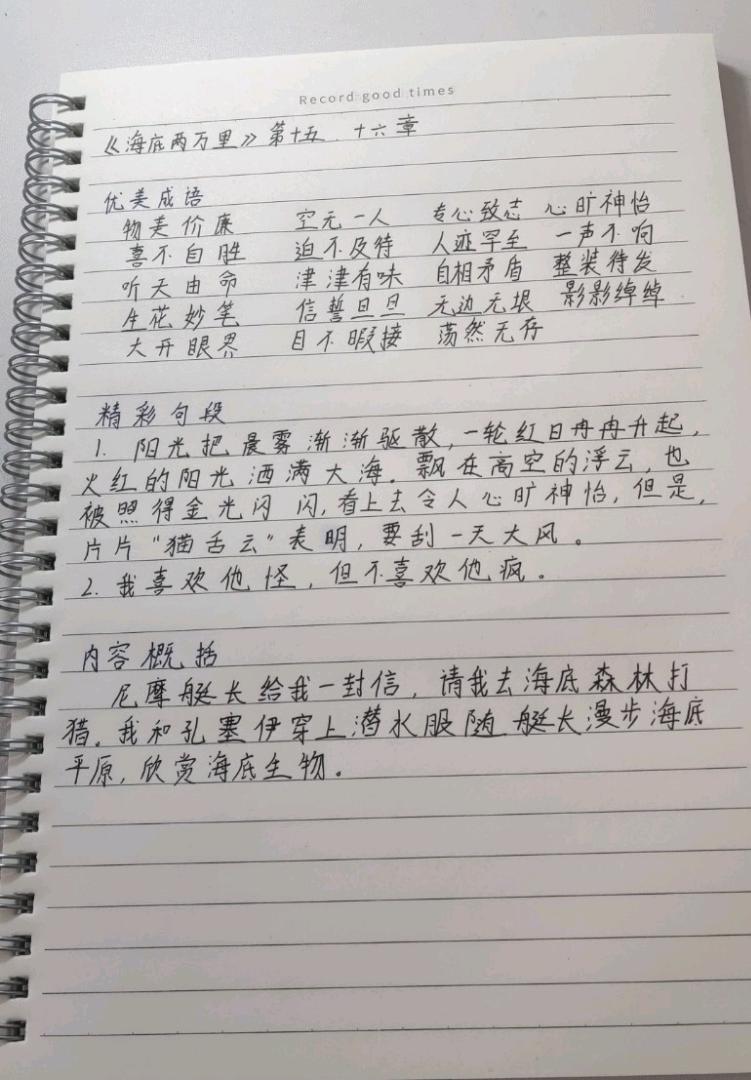 Record good times
《海底两万里》第十五 十六章
优美成语
物美价廉 空无一人 专心致志 心旷神怡
喜不自胜 迫不及待 人迹罕至 一声不响
听天由命 津津有味 自相矛盾 整装待发
生花妙笔 信誓旦旦 无边无垠 影影绰绰
大开眼界 目不暇接 荡然无存
精彩句段
1. 阳光把晨雾渐渐驱散,一轮红日冉冉升起,
火红的阳光洒满大海。飘在高空的浮云,也
被照得金光闪闪,看上去令人心旷神怡,但是,
片片“猫舌云”表明,要刮一天大风。
2. 我喜欢他怪,但不喜欢他疯。
内容概括
尼摩艇长给我一封信,请我去海底森林打
猎。我和孔塞伊穿上潜水服随艇长漫步海底
平原,欣赏海底生物。